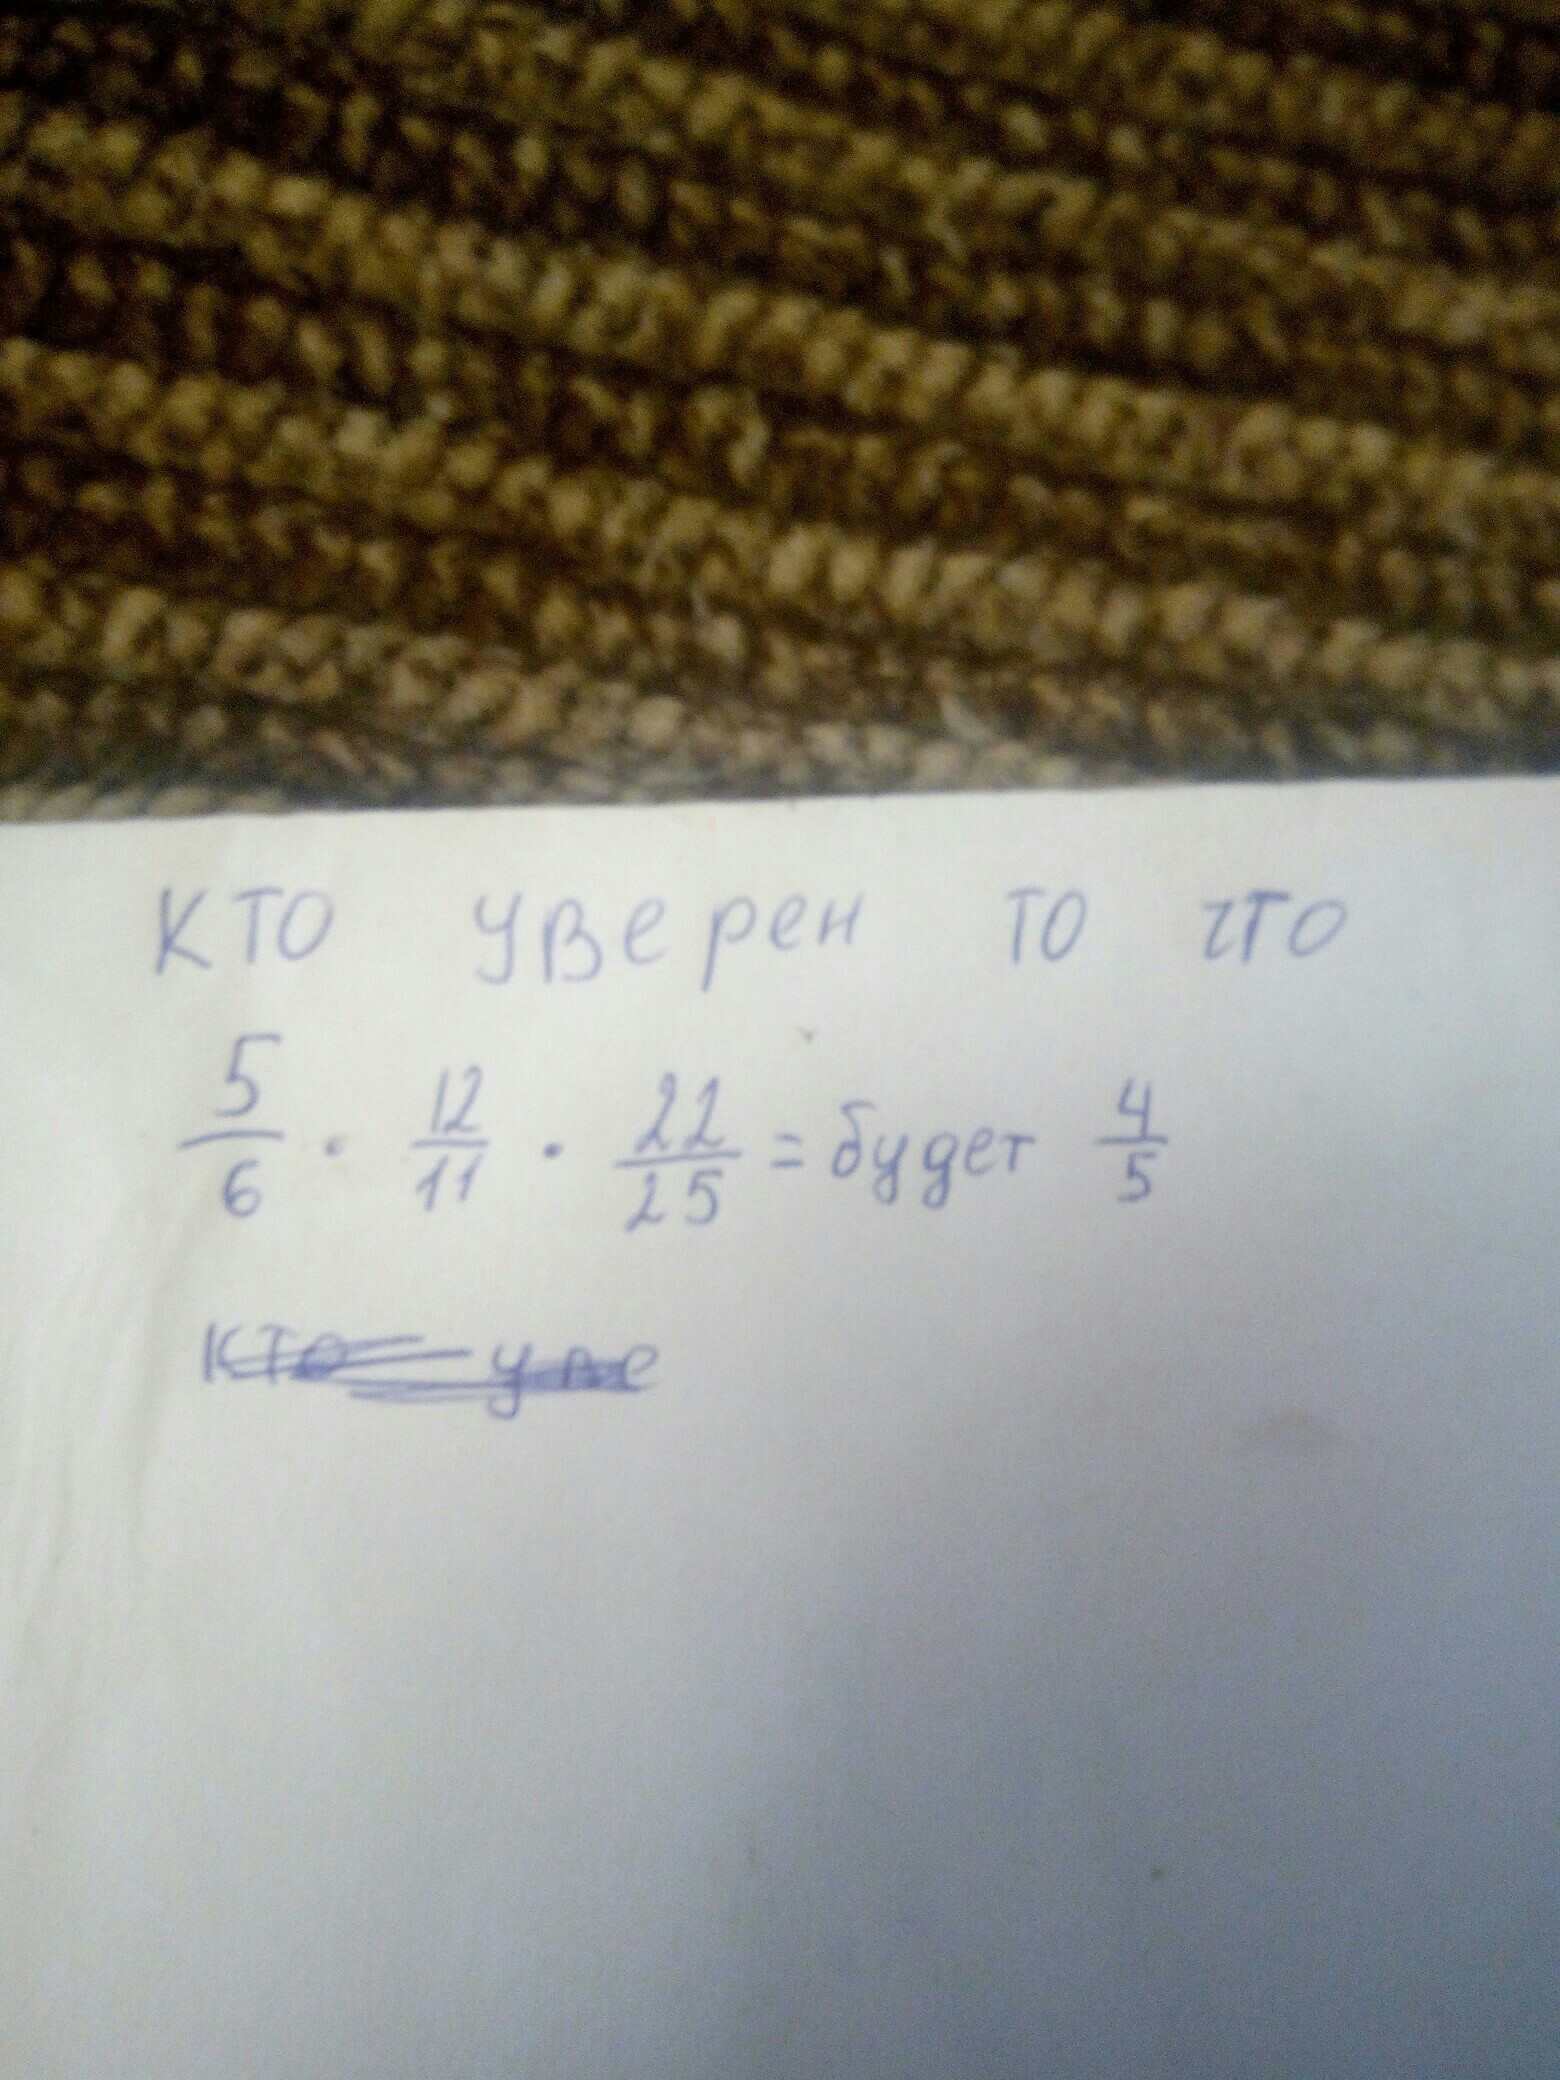 кто уверен то что
5/6 · 12/11 · 22/25 = будет 4/5
кто уве